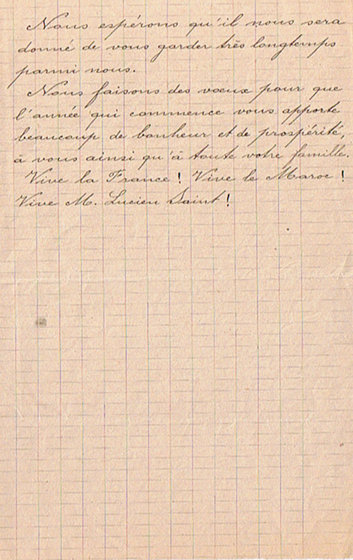 Nous espérons qu'il nous sera
donné de vous garder très longtemps
parmi nous.
Nous faisons des vœux pour que
l'année qui commence vous apporte
beaucoup de bonheur et de prospérité,
à vous ainsi qu'à toute votre famille.
Vive la France ! Vive le Maroc !
Vive M. Lucien Saint !